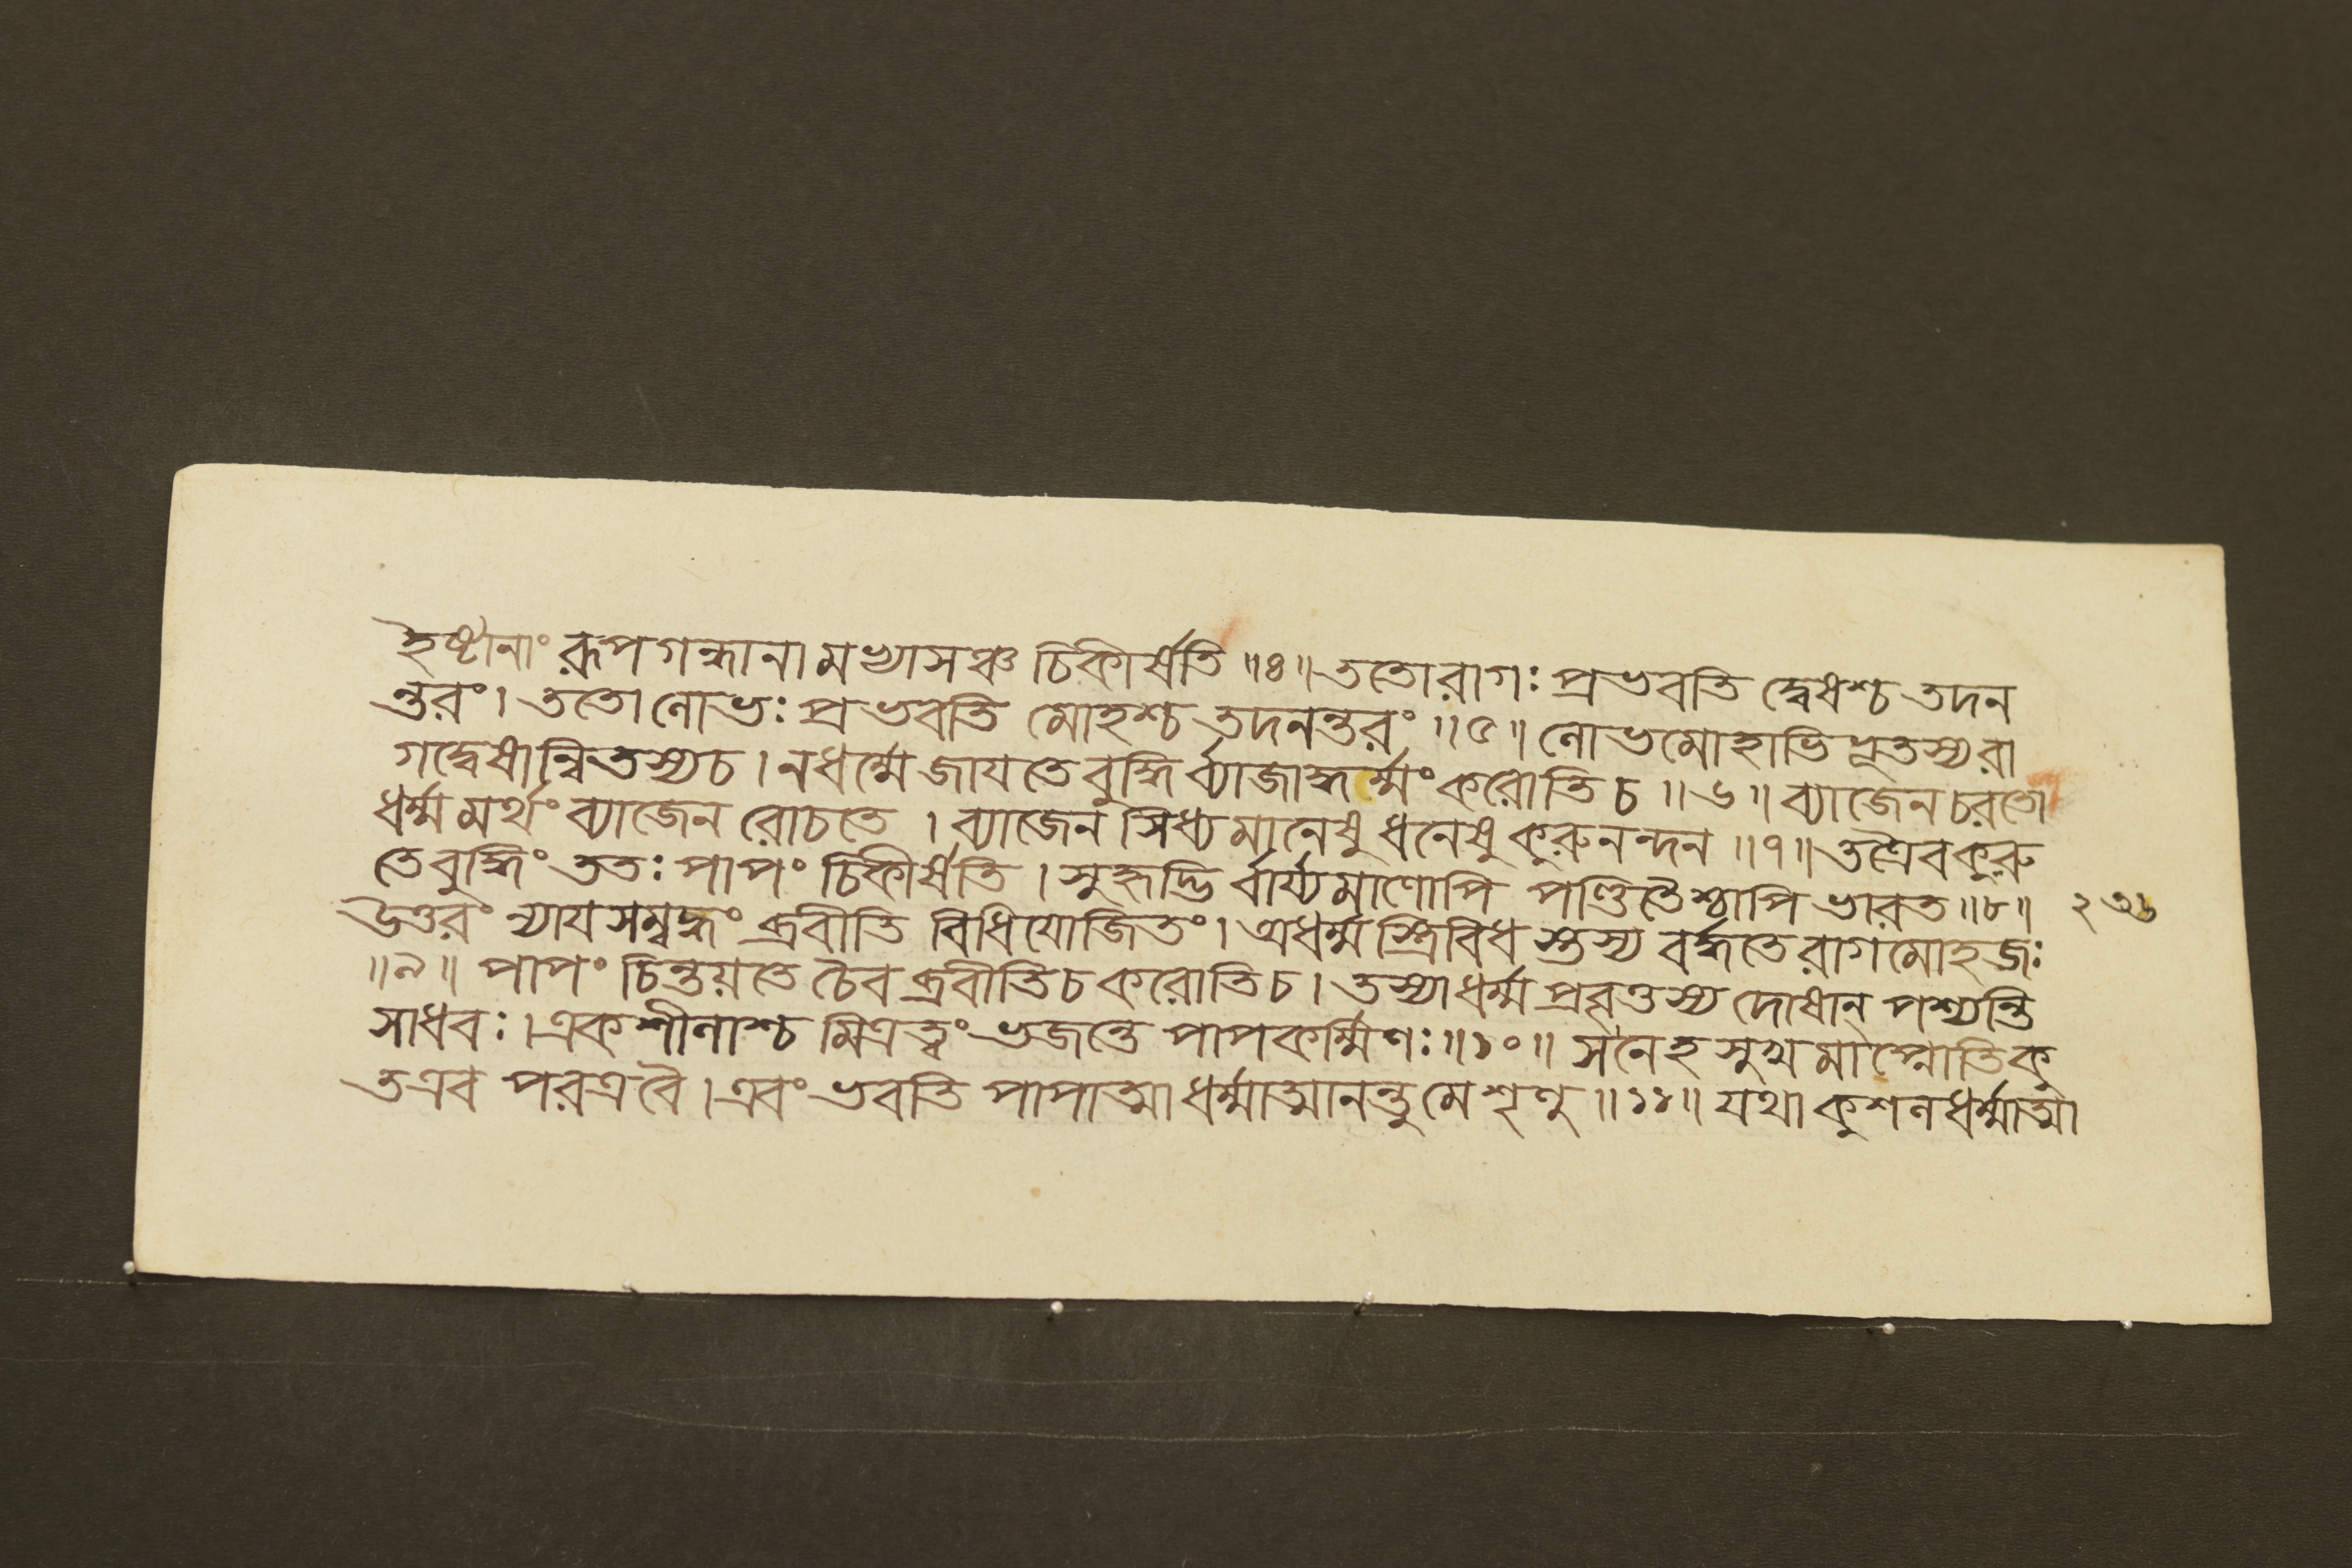 ইষ্টানাং রূপগন্ধানামভ্যাসঞ্চ চিকীর্ষতি ॥৪॥ ততোরাগঃ প্রভবতি দ্বেষশ্চ তদন
ন্তরং। ততো লোভঃ প্রভবতি মোহশ্চ তদনন্তরং ॥৫॥ লোভমোহাভিভূতস্যরা
গদ্বেষান্বিতস্যচ। নধর্ম্মে জাযতে বুদ্ধির্ব্যাজাদ্ধর্ম্মং করোতি চ ॥৬॥ ব্যাজেন চরতো
ধর্ম্মমর্থং ব্যাজেন রোচতে । ব্যাজেন সিধ্যমানেষু ধনেষু কুরুনন্দন ॥৭॥ তত্রৈবকুরু
তেবুদ্ধিং ততঃ পাপং চিকীর্ষতি । সুহৃদ্ভির্বার্য্যমাণোপি পণ্ডিতৈশ্চাপি ভারত ॥৮॥ ২৩৬
উত্তরং ন্যাযসম্বদ্ধং ব্রবীতি বিধিযোজিতং। অধর্ম্মস্ত্রিবিধস্তস্য বর্দ্ধতে রাগমোহজঃ
॥৯॥ পাপং চিন্তয়তে চৈব ব্রবীতিচ করোতিচ। তস্যাধর্ম্মপ্রবৃত্তস্য দোষান্ পশ্যন্তি
সাধবঃ। একশীলাশ্চ মিত্রত্বং ভজন্তে পাপকর্ম্মিণঃ ॥১০॥ সনেহ সুখমাপ্নোতিকু
তএব পরত্রবৈ। এবং ভবতি পাপাত্মা ধর্ম্মাত্মানন্তু মে শৃণু ॥১১॥ যথা কুশলধর্ম্মাত্মা